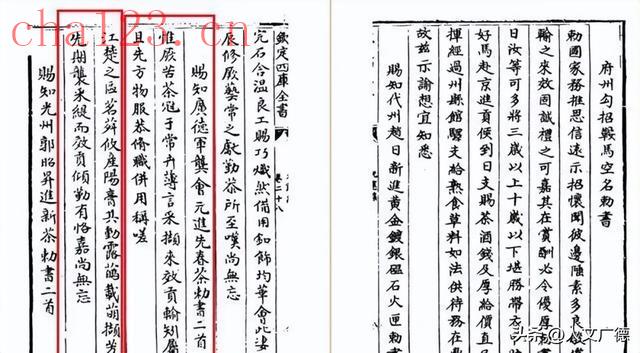 府州勾招鞍馬空名勅書
勅國家務推恩信遠示招懷聞彼邊陲素多良
輸之來效固誠禮之可嘉其在賞酬必令優厚
日汝等可多將三歲以上十歲以下堪勝帶衣
好馬赴京進貢便到日支賜茶酒錢及厚給價直
揮經過州縣館驛支給熟食草料如法供待務在
故茲示諭想宜知悉
賜知代州趙日新進黃金鍍銀石火匣勅書
欽定四庫全書
卷二十八
完石含溫良工賜巧熾然備用釦飾均華會此
辰修厥藝常之獻勤所至嘆尚無忘
賜知廣德軍龔會元進先春茶勅書二首
惟厥苦茶冠于常卉薄言采擷來效貢輸知屬
且先方物服恭脩職併用稱嗟
江楚之區茗荈攸産陽膏其動露載萌擷芳
先期襲采緹而效貢傾勤有恪嘉尚無忘
賜知光州郭昭昇進新茶勅書二首
cha123.cn
头条 @人文广德